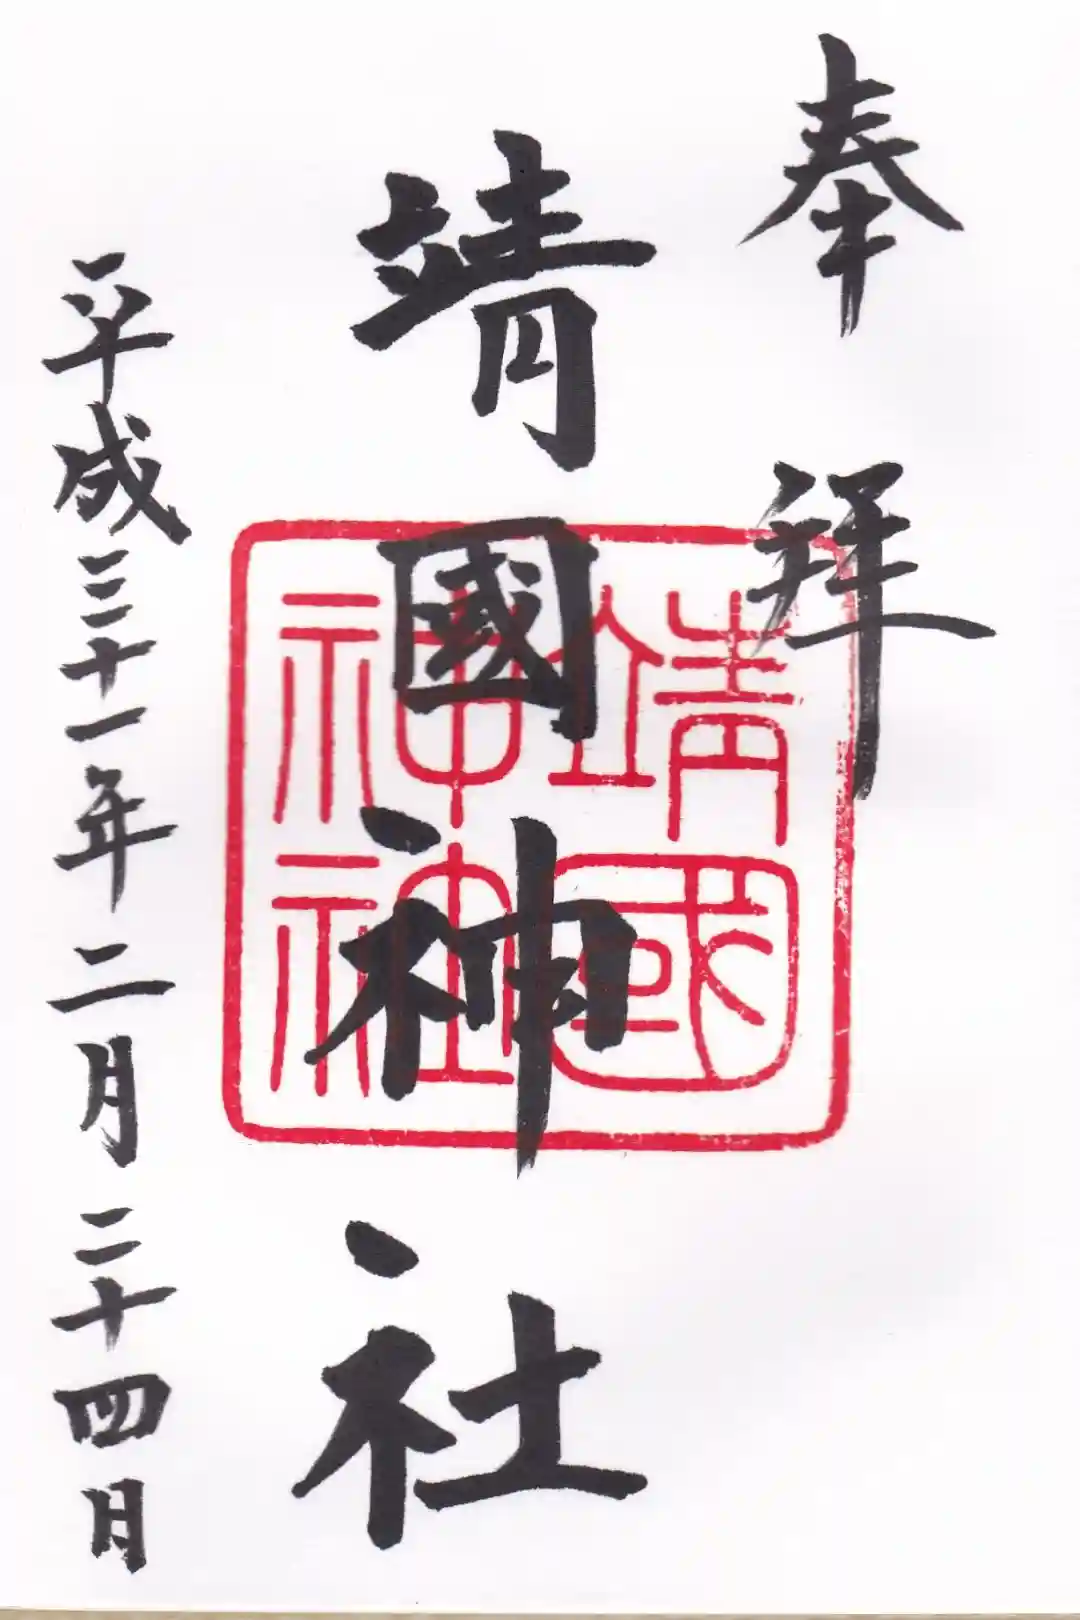 奉拜
靖國神社
平成三十一年二月二十四日
靖國
神社